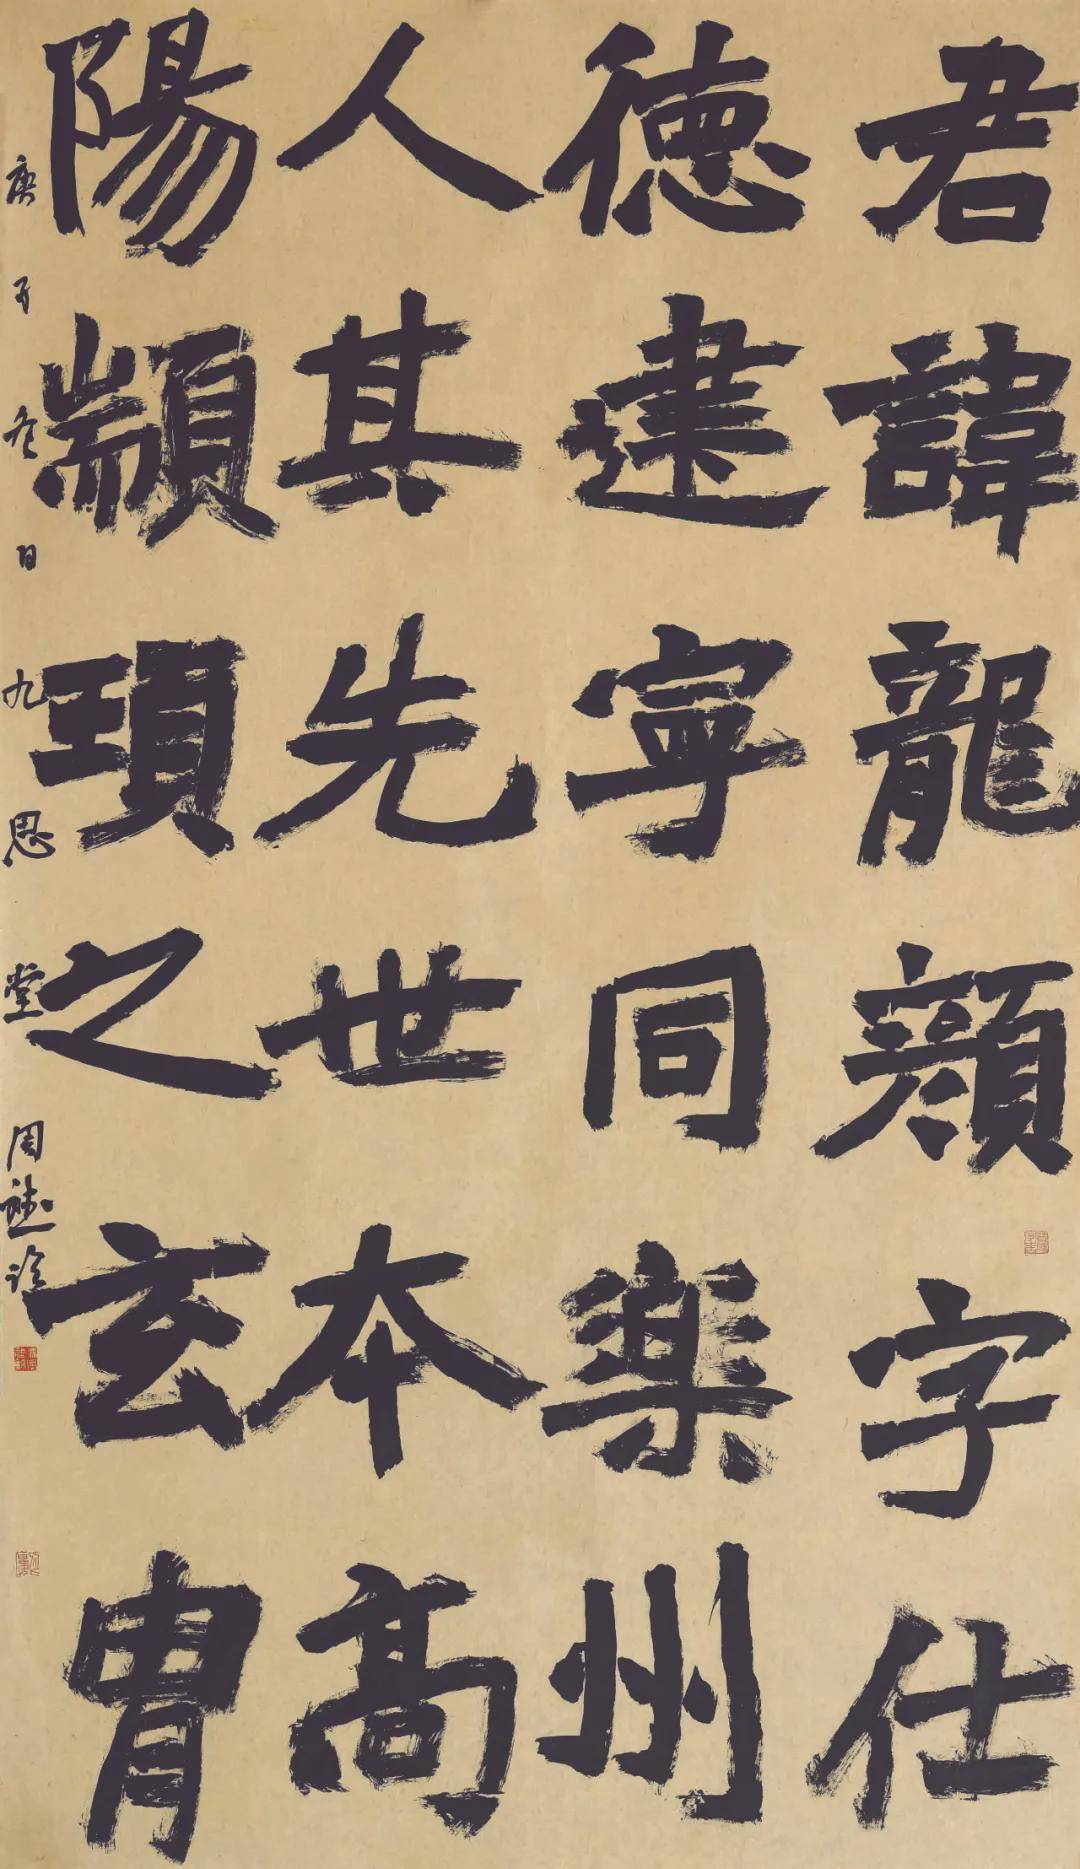 君諱龍顏字仕
德建寧同樂州
人其先世本高
陽顓頊之玄胄
庚子冬日九思堂周斌